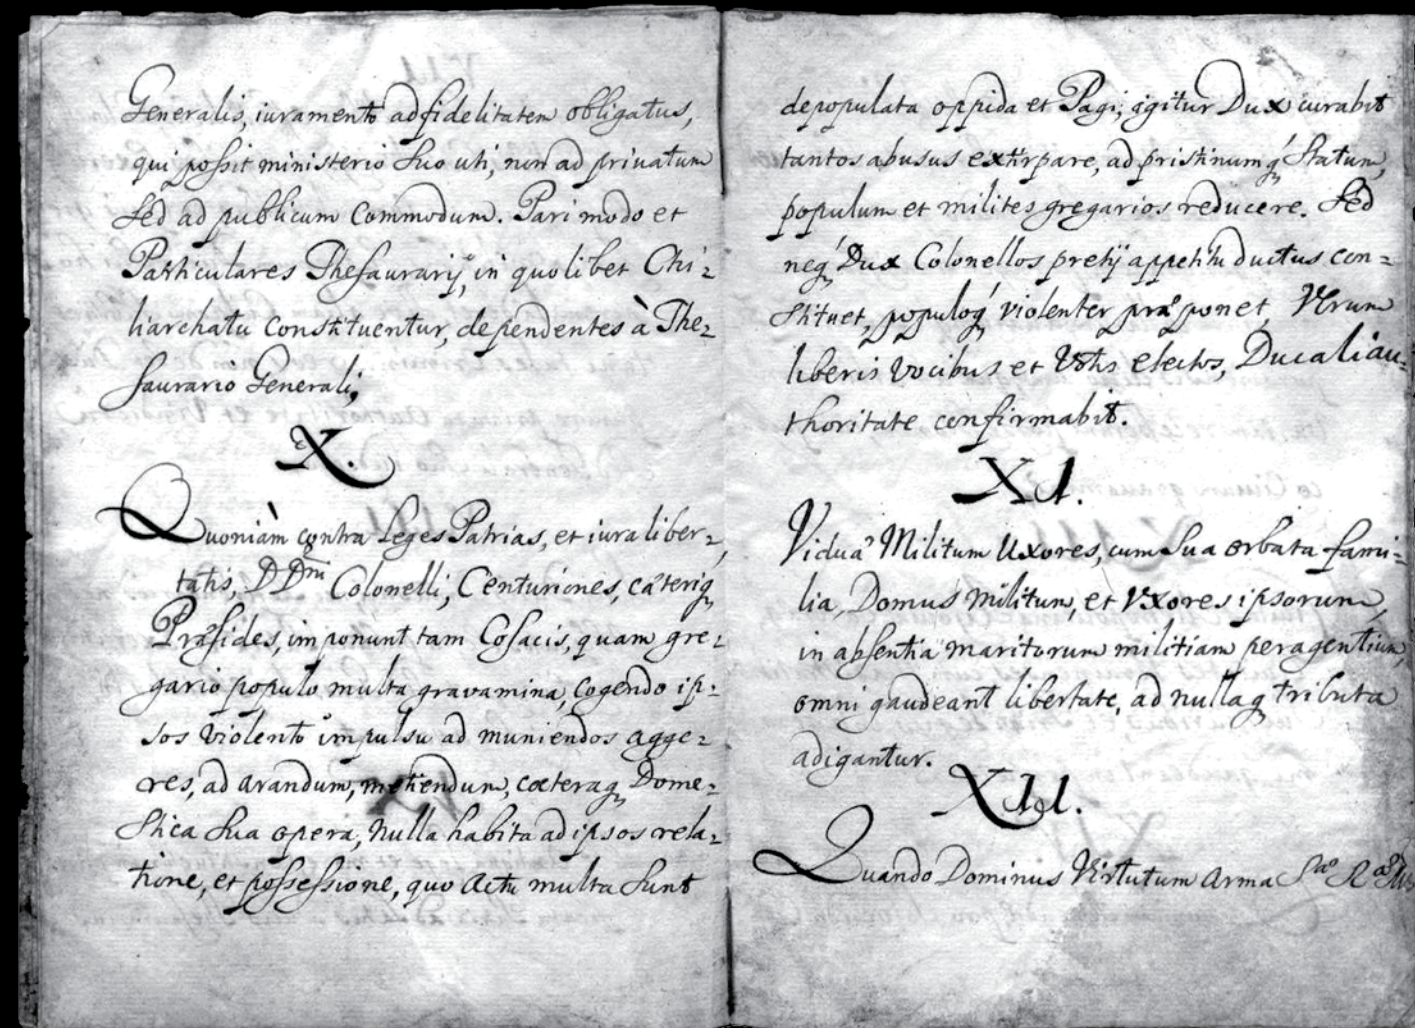 Generalis, iuramento ad fidelitatem obligatus,
qui possit ministerio suo uti, non ad privatum
sed ad publicum commodum. Pari modo et
Particulares Thesaurarij, in quolibet Chi-
liarchatu constituentur, dependentes à The-
saurario Generali,
X.
Quoniàm contra Leges Patrias, et iura liber-
tatis, DDni Colonelli, Centuriones, cæteriq
Præsides, imponunt tam Cosacis, quam gre-
gario populo multa gravamina, cogendo ip-
sos violento impulsu ad muniendos agge-
res, ad arandum, metiendum, cæteraq Dome-
stica sua opera, nulla habita ad ipsos rela-
tione, et possessione, quo actu multa sunt
depopulata oppida et Pagi; igitur Dux curabit
tantos abusus extirpare, ad pristinumq́ statum,
populum et milites gregarios reducere. Sed
neq́ Dux Colonellos pretij appetitu ductus con-
stituet, populoq́ violenter præponet, Verum
liberis vocibus et Votis electos, Ducali au-
thoritate confirmabit.
XI.
Viduæ Militum Uxores, cum sua orbata fami-
lia, Domus militum, et Vxores ipsorum,
in absentia maritorum militiam peragentium,
omni gaudeant libertate, ad nullaq tributa
adigantur.
XII.
Quando Dominus Virtutum arma Sæ Ræ